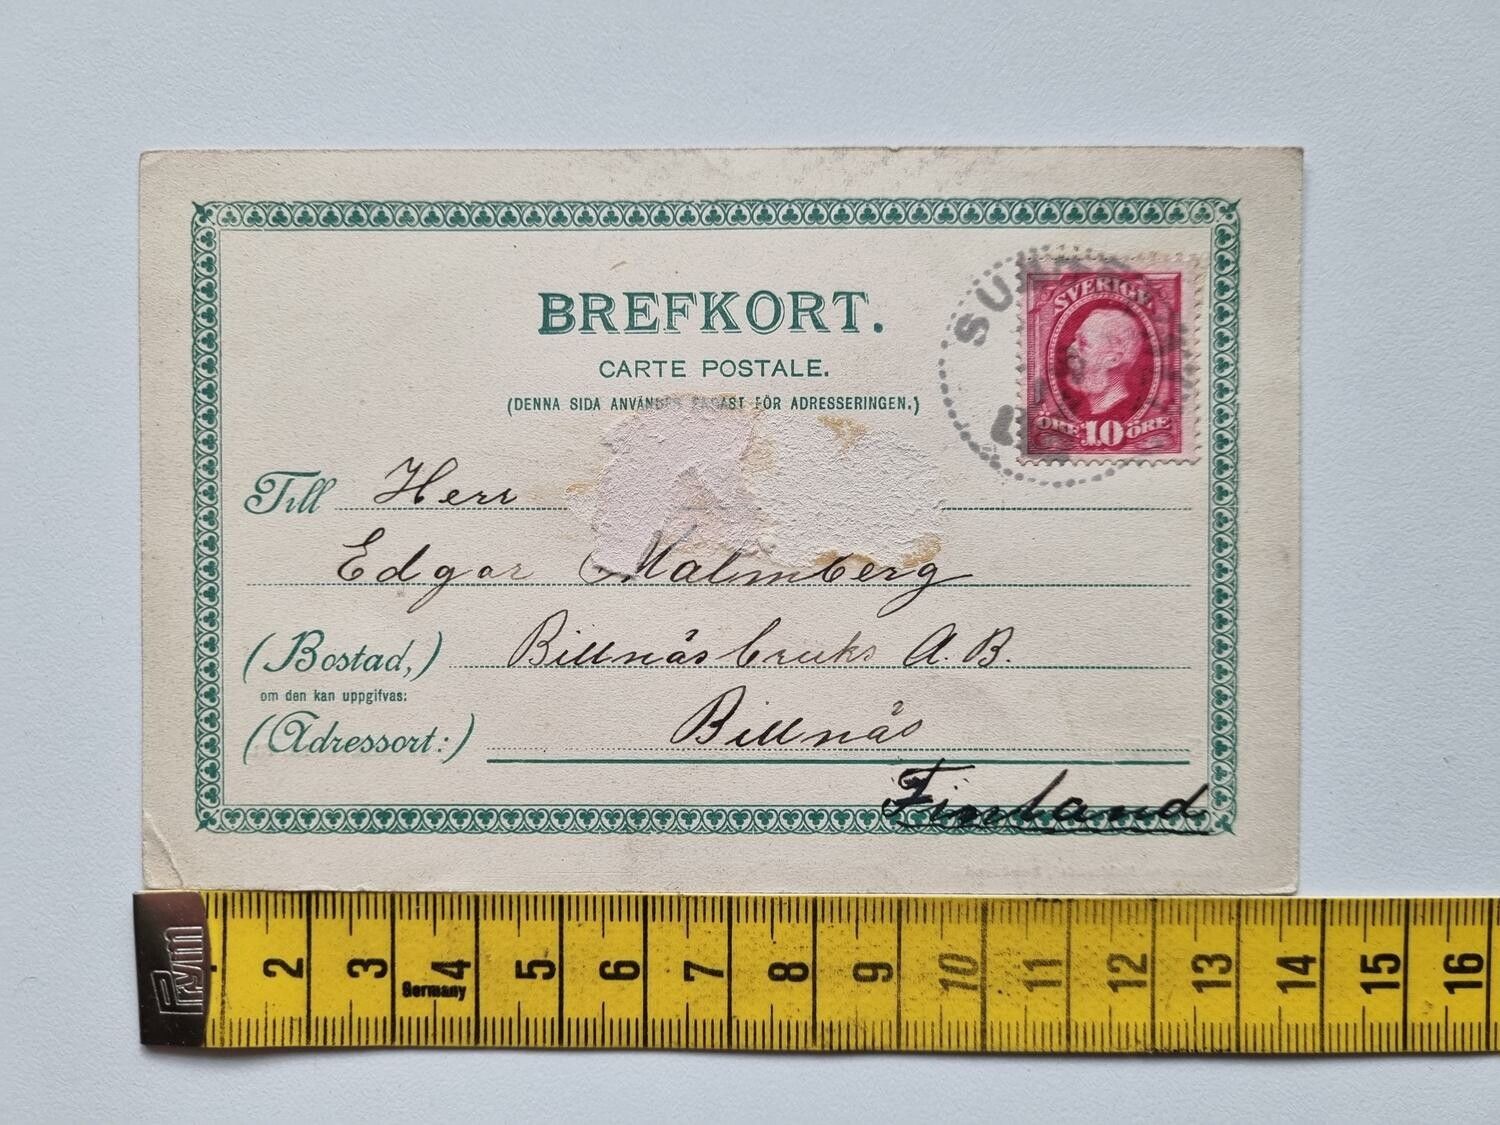 BREFKORT.
CARTE POSTALE.
(DENNA SIDA ANVÄNDES ENDAST FÖR ADRESSERINGEN.)
SVERIGE
ÖRE 10 ÖRE
Till Herr
Edgar Malmberg
(Bostad,) Billnäs bruks A.B.
om den kan uppgifvas:
(Adressort:) Billnäs
Finland
Prym
2 3 4 5 6 7 8 9 10 11 12 13 14 15 16
Germany